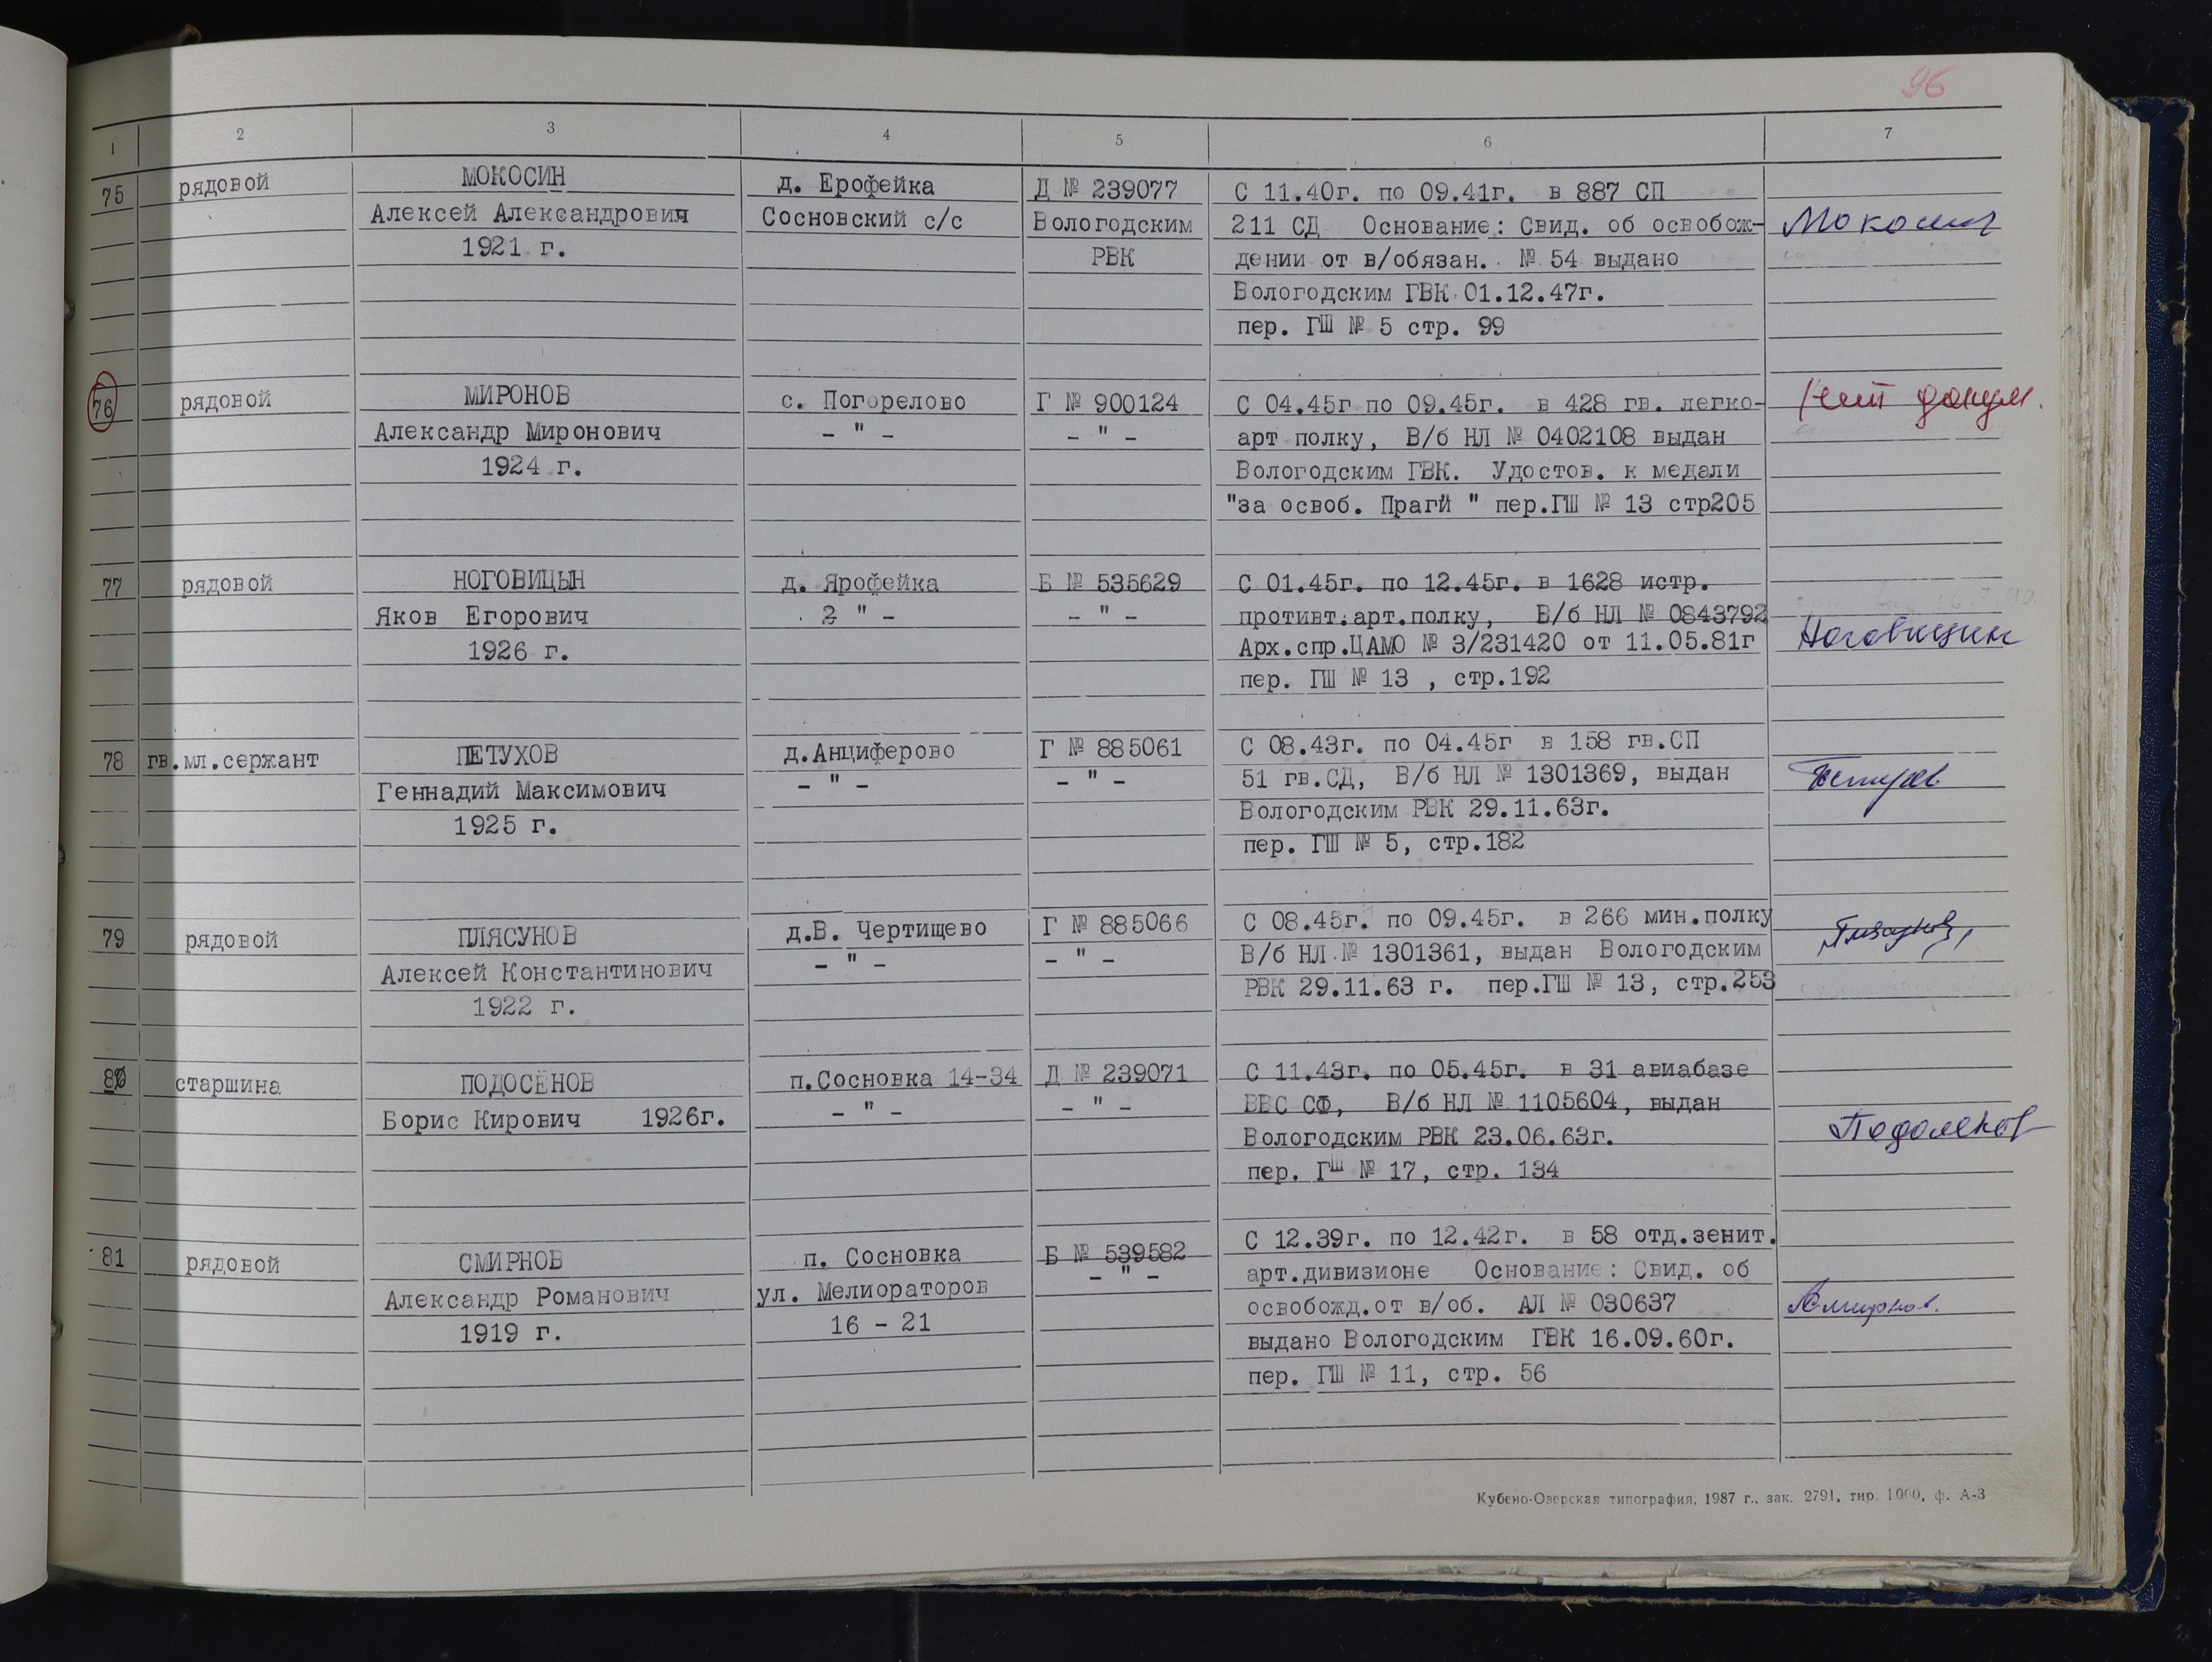 96
1 2 3 4 5 6 7
75 рядовой МОКОСИН д. Ерофейка Д № 239077 С 11.40г. по 09.41г. в 887 СП
Алексей Александровия Сосновский с/с Вологодским 211 СД Основание: Свид. об освобож- Мокосин
1921 г. РВК дении от в/обязан. № 54 выдано
Вологодским ГВК 01.12.47г.
пер. ГШ № 5 стр. 99
76 рядовой МИРОНОВ с. Погорелово Г № 900124 С 04.45г по 09.45г. в 428 гв. легко- Нет докум.
Александр Миронович - " - - " - арт полку, В/б НЛ № 0402108 выдан
1924 г. Вологодским ГВК. Удостов. к медали
"за освоб. Прагй " пер.ГШ № 13 стр205
77 рядовой НОГОВИЦЫН д. Ярофейка Б № 535629 С 01.45г. по 12.45г. в 1628 истр.
Яков Егорович - " - - " - противт.арт.полку, В/б НЛ № 0843792
1926 г. Арх.спр.ЦАМО № 3/231420 от 11.05.81г Ноговицин
пер. ГШ № 13 , стр.192
78 гв.мл.сержант ПЕТУХОВ д.Анциферово Г № 885061 С 08.43г. по 04.45г в 158 гв.СП
Геннадий Максимович - " - - " - 51 гв.СД, В/б НЛ № 1301369, выдан Петухов
1925 г. Вологодским РВК 29.11.63г.
пер. ГШ № 5, стр.182
79 рядовой ПЛЯСУНОВ д.В. Чертищево Г № 885066 С 08.45г. по 09.45г. в 266 мин.полку Плясунов
Алексей Константинович - " - - " - В/б НЛ № 1301361, выдан Вологодским
1922 г. РВК 29.11.63 г. пер.ГШ № 13, стр.253
80 старшина ПОДОСЁНОВ п.Сосновка 14-34 Д № 239071 С 11.43г. по 05.45г. в 31 авиабазе
Борис Кирович 1926г. - " - - " - ВВС СФ, В/б НЛ № 1105604, выдан
Вологодским РВК 23.06.63г. Подосенов
пер. ГШ № 17, стр. 134
81 рядовой СМИРНОВ п. Сосновка Б № 539582 С 12.39г. по 12.42г. в 58 отд.зенит.
Александр Романович ул. Мелиораторов - " - арт.дивизионе Основание: Свид. об
1919 г. 16 - 21 освобожд.от в/об. АЛ № 030637 АСмирнов.
выдано Вологодским ГВК 16.09.60г.
пер. ГШ № 11, стр. 56
Кубено-Озерская типография, 1987 г., зак. 2791, тир. 1000, ф. А-3